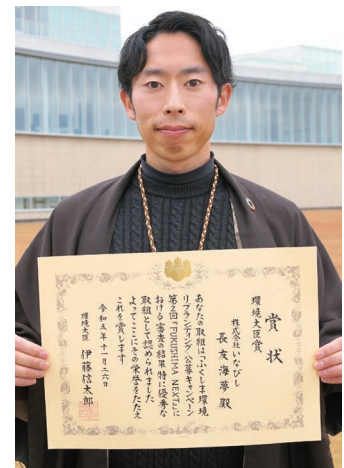 賞状
環境大臣賞
株式会社いなびし
長友海夢 殿
あなたの取組は「ふくしま環境
リブランディング公募キャンペーン
第2回『FUKUSHIMA NEXT』に
おける審査の結果特に優秀な
取組として認められました
よってここにその栄誉をたたえ
これを賞します
令和五年十一月二六日
環境大臣 伊藤信太郎